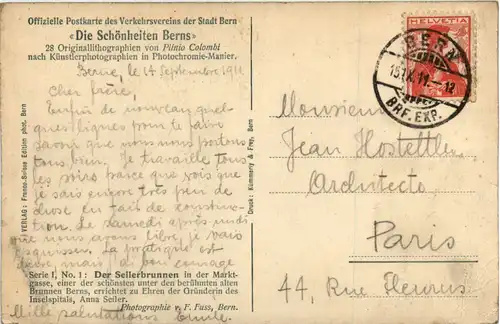 Offizielle Postkarte des Verkehrsvereins der Stadt Bern
«Die Schönheiten Berns»
28 Originallithographien von Plinio Colombi
nach Künstlerphotographien in Photochromie-Manier.
Berne, le 14 Septembre 1911
Cher frère,
Enfin de nouveau quel-
ques lignes pour te faire
savoir que nous nous portons
tous bien. Je travaille tous
les soirs parce que vois que
je sais encore très peu de
chose en fait de construc-
tion. Le samedi après-midi
que nous avons libre, je vais
esquisser. La pratique est
dure, mais bon courage
Serie I, No. 1: Der Seilerbrunnen in der Markt-
gasse, einer der schönsten unter den berühmten alten
Brunnen Berns, errichtet zu Ehren der Gründerin des
Inselspitals, Anna Seiler.
Photographie v. F. Fuss, Bern.
Mille salutations Emile.
VERLAG: Franco-Suisse Edition phot. Bern
Druck: Kümmerly & Frey, Bern
HELVETIA
BERN
BRF. EXP.
Monsieur
Jean Hostettler
Architecte
Paris
44, Rue Fleurus